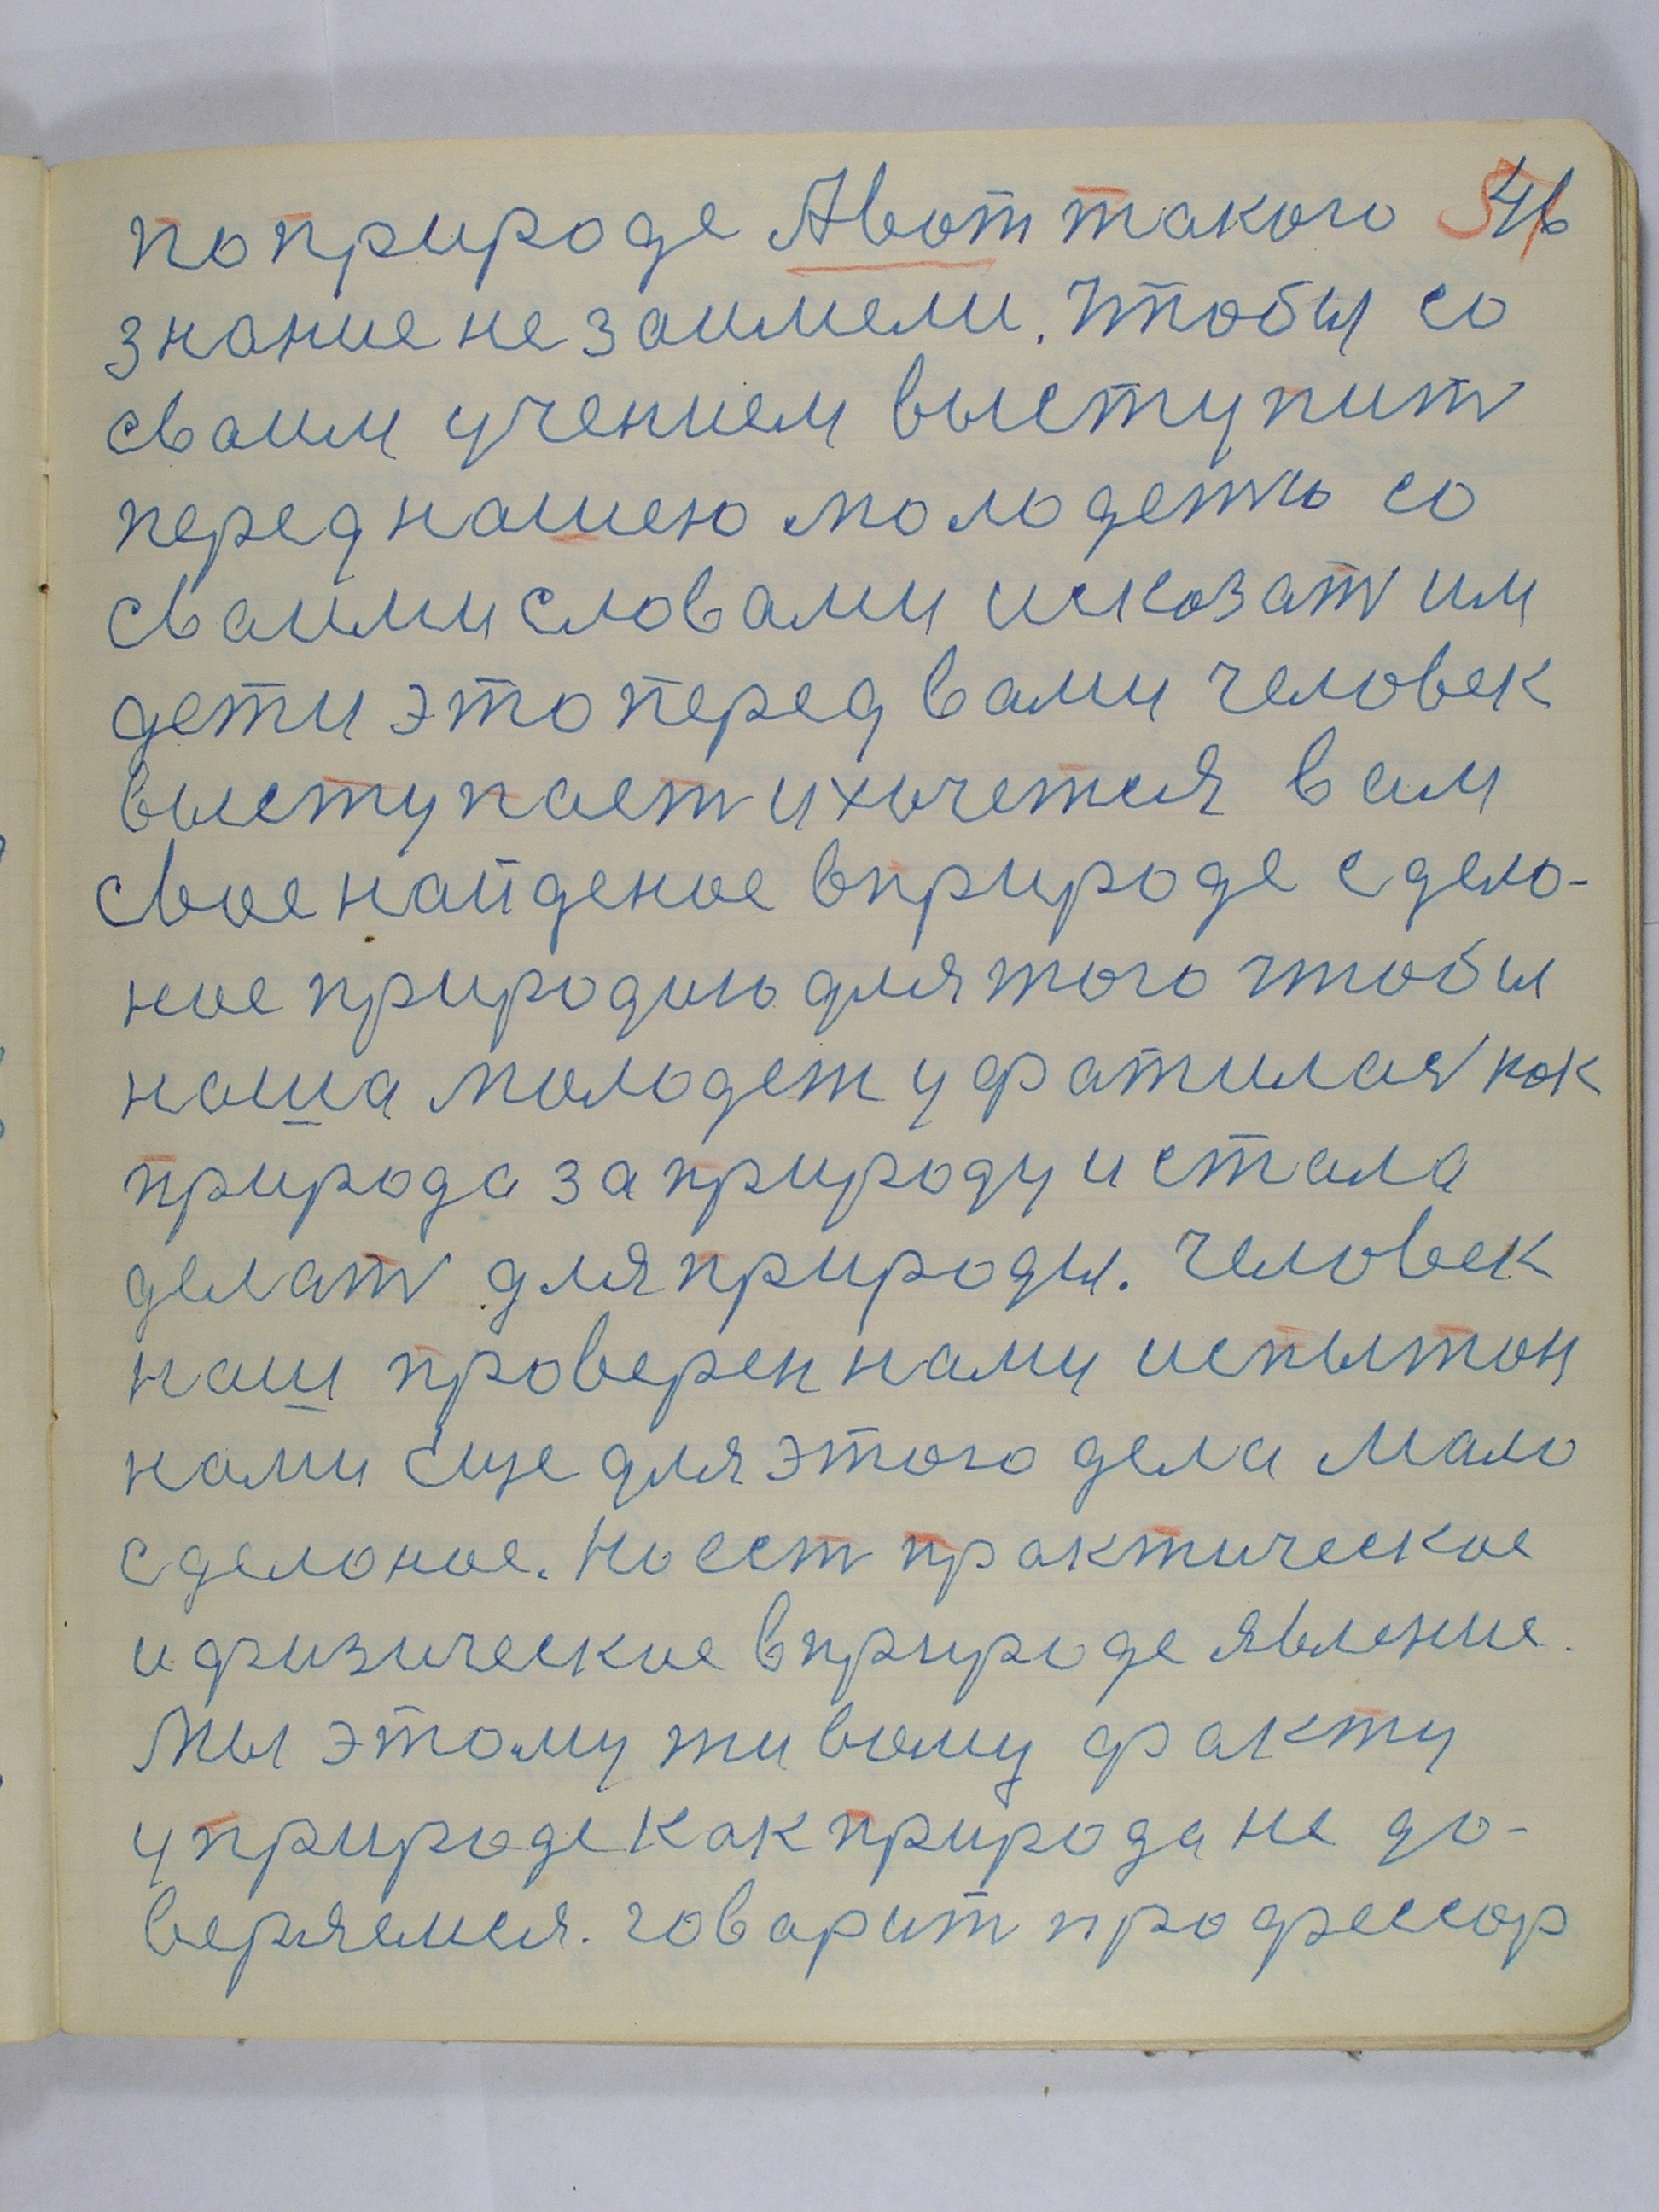 по природе Авот такого
знание не заимели. Чтобы со
сваим учением выступит
перед нашею молодежъю со
сваими словами исказат им
дети это перед вами человек
выступает и хочется вам
свое найденое вприроде сдело-
ное природою для того чтобы
наша молодеж уфатилас как
природа за природу и стала
делат для природы. Человек
наш проверен нами испытан
нами еще для этого дела мало
сделоное. Но ест практическое
и физическое вприроде явление.
Мы этому живому факту
уприроде как природа не до-
веряемся. говарит профессор